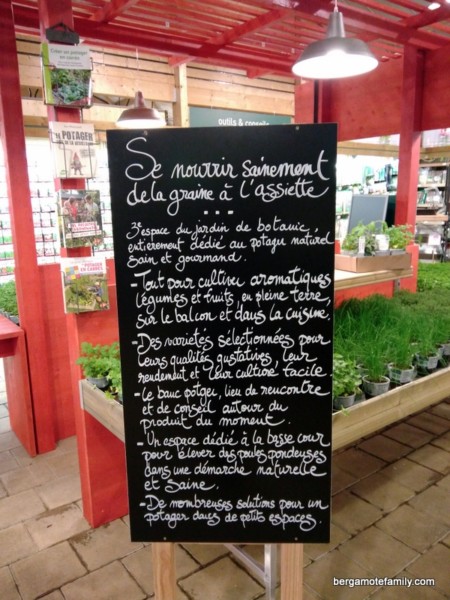 outils & conseils
Créer un potager
en carrés
POTAGER
LE POTAGER
Se nourrir sainement
de la graine à l'assiette
...
3e espace du jardin de botanic
entièrement dédié au potager naturel
sain et gourmand.
- Tout pour cultiver aromatiques
légumes et fruits, en pleine terre,
sur le balcon et dans la cuisine.
- Des variétés sélectionnées pour
leurs qualités gustatives, leur
rendement et leur culture facile.
- Le banc potager, lieu de rencontre
et de conseil autour du
produit du moment.
- Un espace dédié à la basse cour
pour élever des poules pondeuses
dans une démarche naturelle
et saine.
- De nombreuses solutions pour un
potager dans de petits espaces.
bergamotefamily.com